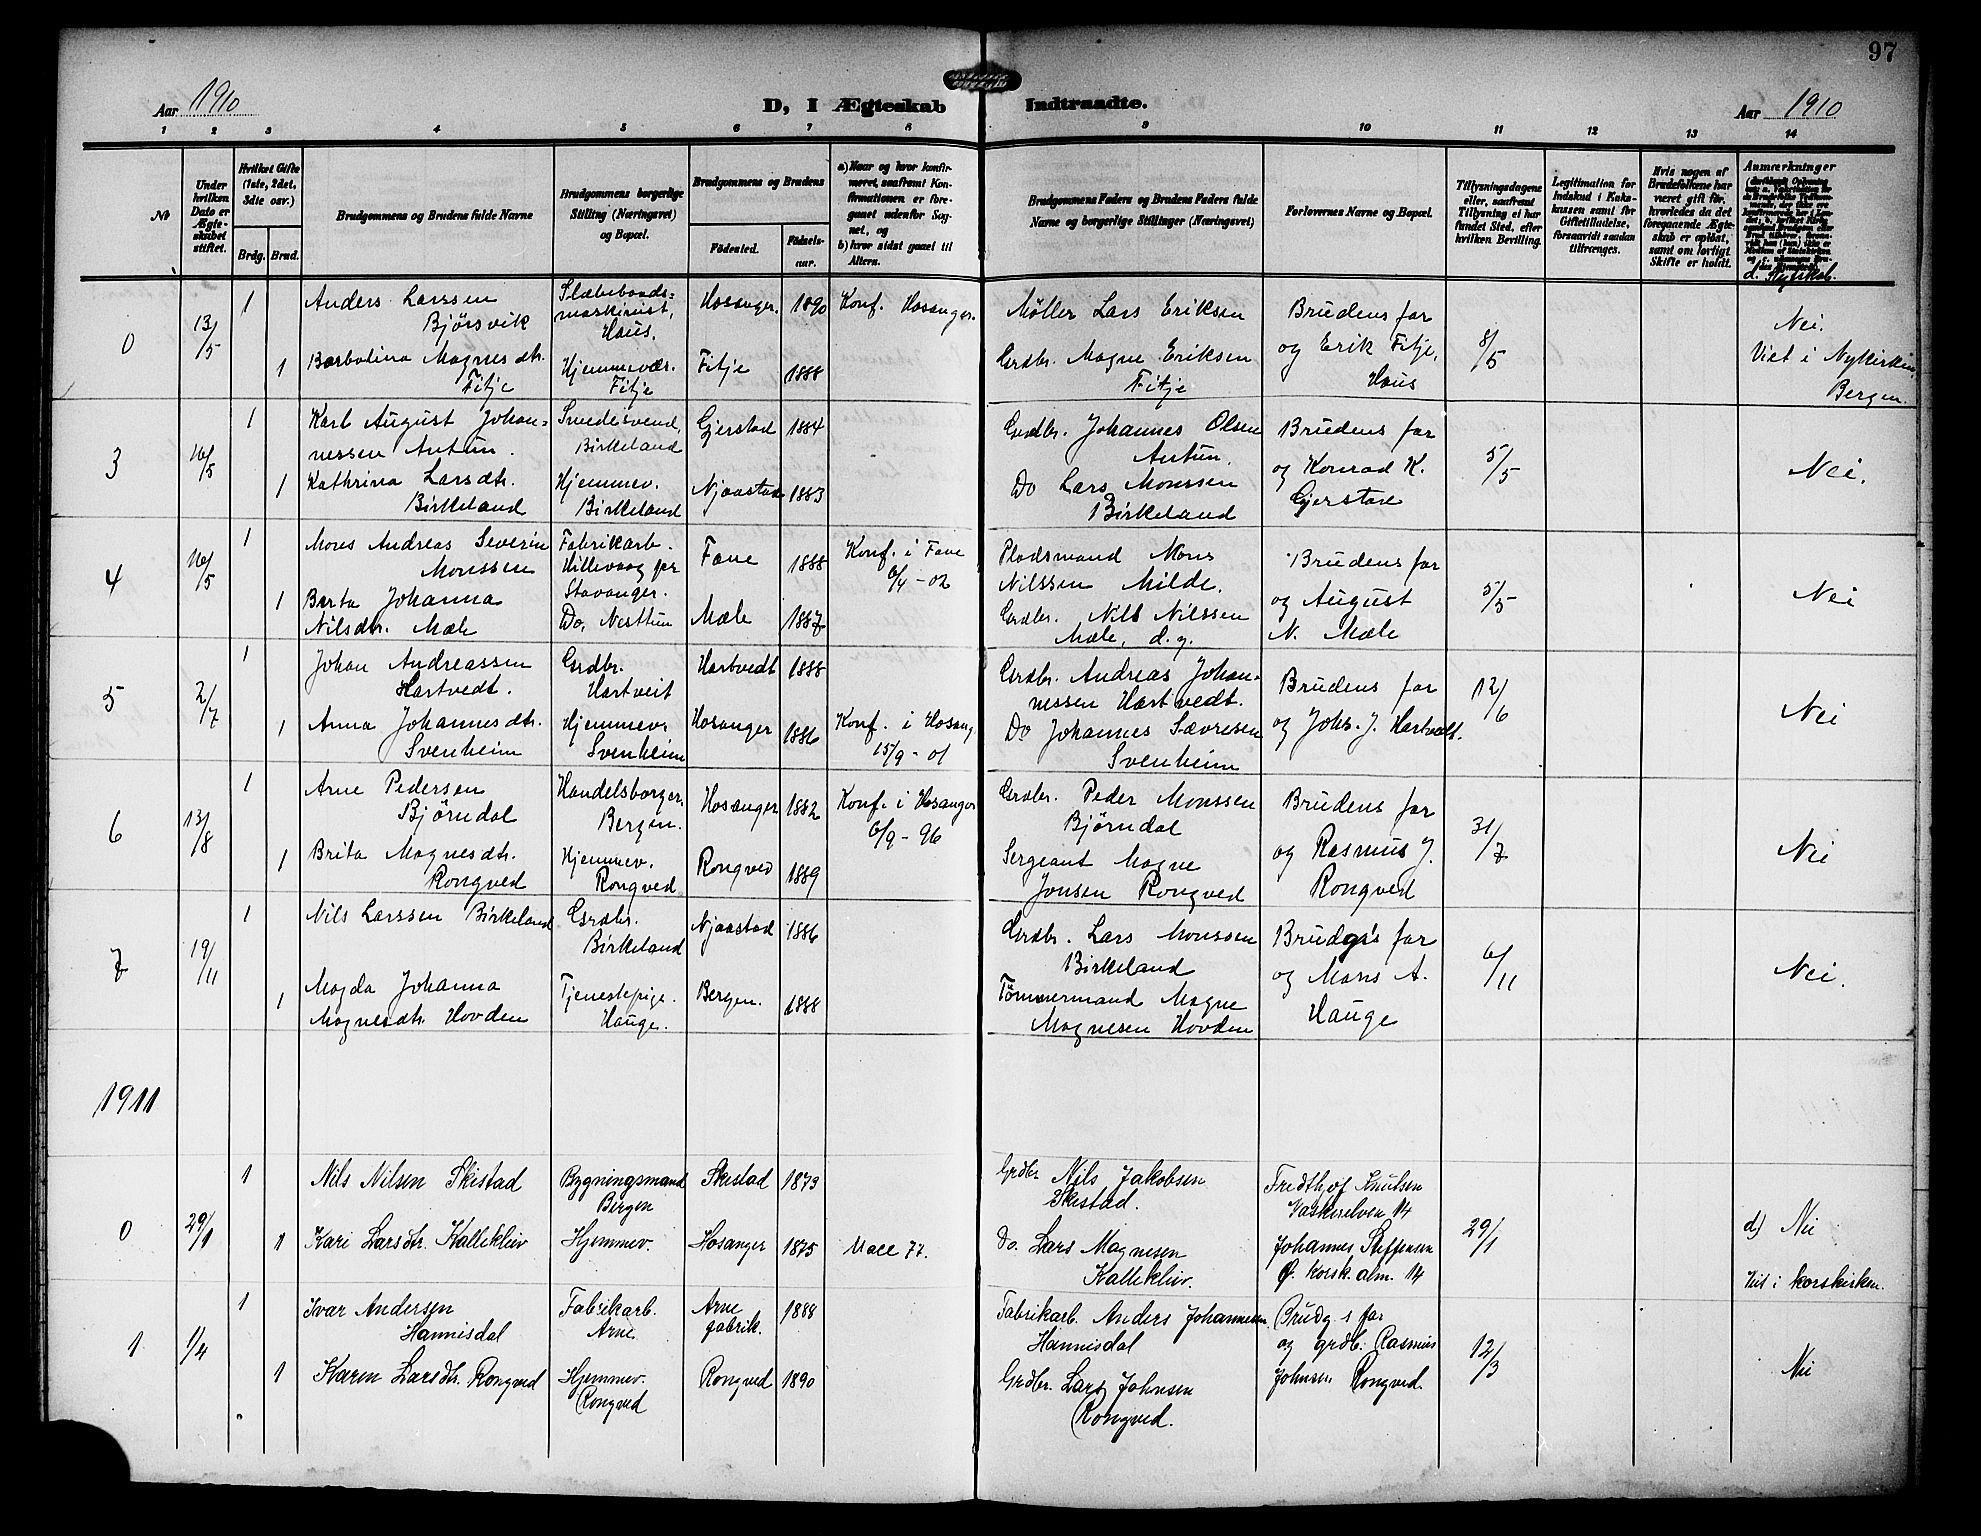 97
Aar 1910
D, I Ægteskab Indtraadte.
Aar 1910
1 2 3 4 5 6 7 8 9 10 11 12 13 14
№
Under hvilken Dato er Ægteskabet stiftet.
Hvilket Gifte (1ste, 2det, 3die osv.)
Brdg. Brud.
Brudgommens og Brudens fulde Navne
Brudgommens borgerlige Stilling (Næringsvei) og Bopæl.
Brudgommens og Brudens
Fødested. Fødselsaar.
a) Naar og hvor konfirmeret, saafremt Konfirmationen er foregaaet udenfor Sognet, og
b) hvor sidst gaaet til Alters.
Brudgommens Faders og Brudens Faders fulde Navne og borgerlige Stillinger (Næringsvei)
Forlovernes Navne og Bopæl.
Tillysningsdagene eller, saafremt Tillysning ei har fundet Sted, efter hvilken Bevilling.
Legitimation for Indskud i Enkekassen samt for Giftetilladelse, forsaavidt saadan tiltrænges.
Hvis nogen af Brudefolkene har været gift før, hvorledes da det foregaaende Ægteskab er opløst, samt om lovligt Skifte er holdt.
Anmærkninger
d. Slegtskab.
0 13/5 1 Anders Larssen Bjørsvik
Slæbebaadsmaskinist, Haus.
Hosanger. 1890 Konf. Hosanger.
Møller Lars Eriksen
Brudens far og Erik Fitje, Haus
8/5
Nei.
Viet i Nykirken, Bergen.
1 Barbolina Magnesdtr. Fitje
Hjemmevær. Fitje
Fitje 1888
Grdbr. Magne Eriksen Fitje
3 16/5 1 Karl August Johannessen Antun.
Smedesvend, Birkeland
Gjerstad 1884
Grdbr. Johannes Olsen Antun.
Brudens far og Konrad K. Gjerstad
5/5
Nei.
1 Kathrina Larsdtr. Birkeland
Hjemmev. Birkeland
Njaastad 1883
Do Lars Monssen Birkeland
4 16/5 1 Mons Andreas Severin Monssen
Fabrikarb. Hillevaag pr Stavanger.
Fane 1888 Konf. i Fane 6/4 - 02
Pladsmand Mons Nilssen Milde.
Brudens far og August N. Mæle
5/5
Nei
1 Berta Johanna Nilsdtr. Mæle
Do, Nesttun
Mæle 1887
Grdbr. Nils Nilssen Mæle, d.y.
5 2/7 1 Johan Andreassen Hartvedt.
Grdbr. Hartveit
Hartvedt 1888
Grdbr. Andreas Johannessen Hartvedt.
Brudens far og Johs. J. Hartvedt.
12/6
Nei
1 Anna Johannesdtr. Svenheim
Hjemmev. Svenheim
Hosanger 1886 Konf. i Hosang. 15/9 - 01
Do Johannes Sævresen Svenheim
6 13/8 1 Arne Pedersen Bjørndal
Handelsborger, Bergen.
Hosanger 1882 Konf. i Hosanger 6/9 - 96
Grdbr. Peder Monssen Bjørndal
Brudens far og Rasmus J. Rongved
31/7
Nei
1 Brita Magnesdtr. Rongved
Hjemmev. Rongved
Rongved 1889
Sergeant Magne Jonsen Rongved
7 19/11 1 Nils Larssen Birkeland
Grdbr. Birkeland
Njaastad 1886
Grdbr. Lars Monssen Birkeland
Brudg's far og Mons A. Hauge
6/11
Nei.
1 Magda Johanna Magnesdtr. Hovden
Tjenestepige. Hauge.
Bergen. 1888
Tømmermand Magne Magnesen Hovden
1911
0 29/1 1 Nils Nilsen Skistad
Bygningsmand Bergen
Skistad 1873
Grdbr Nils Jakobsen Skistad.
Fredthjof Knutsen Vaskerelven 14
29/1
d) Nei
Viet i Korskirken.
1 Kari Larsdtr. Kalleklev
Hjemmev.
Hosanger 1875 Vacc 77.
Do. Lars Magnesen Kalleklev.
Johannes Steffensen Ø. Korsk.alm. 14
1 1/4 1 Ivar Andersen Hannisdal
Fabrikarb. Arne
Arne fabrik. 1888
Fabrikarb. Anders Johannesen Hannisdal
Brudg s far og grdb: Rasmus Johnsen Rongved.
12/3
Nei
1 Karen Larsdtr. Rongved
Hjemmev. Rongved
Rongved 1890
Grdbr. Lars Johnsen Rongved.